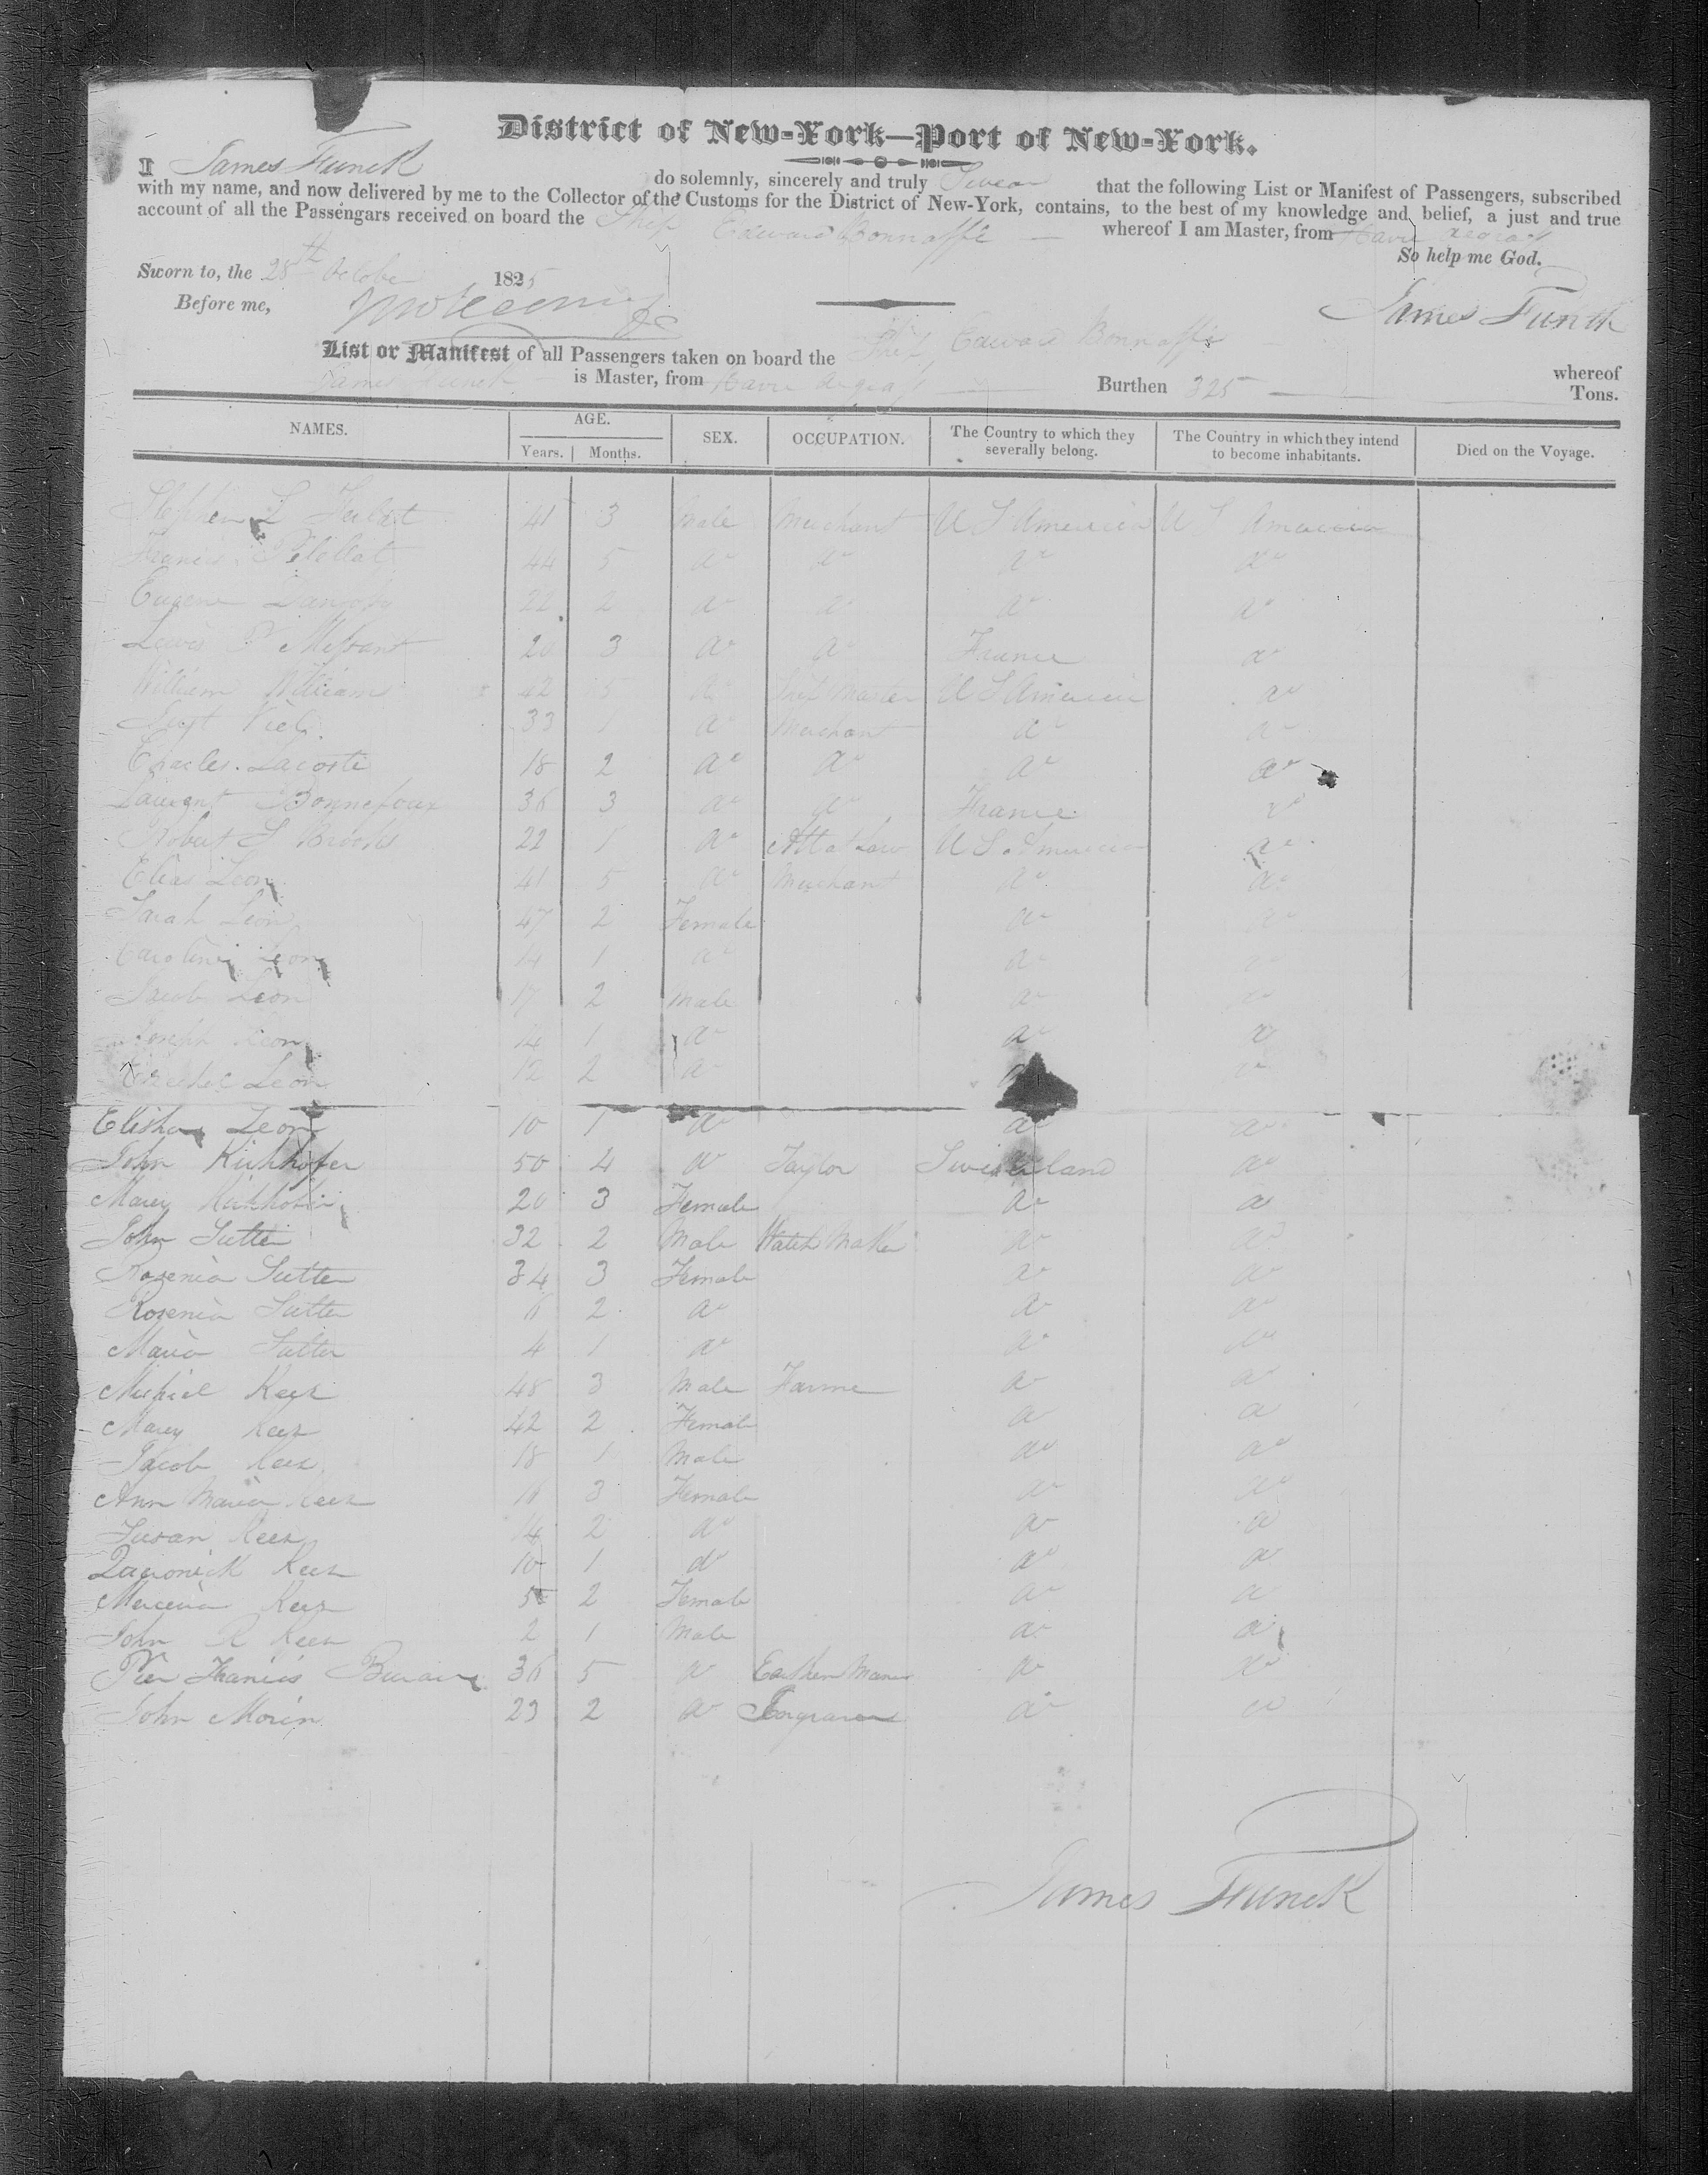 District of New-York—Port of New-York.
I James Funck do solemnly, sincerely and truly Swear that the following List or Manifest of Passengers, subscribed
with my name, and now delivered by me to the Collector of the Customs for the District of New-York, contains, to the best of my knowledge and belief, a just and true
account of all the Passengars received on board the Ship Edward Bonnaffe whereof I am Master, from Havre
So help me God.
Sworn to, the 28th October 1825
Before me,
James Funck
List or Manifest of all Passengers taken on board the Ship Edward Bonnaffe whereof
James Funck is Master, from Havre Burthen 325 Tons.
NAMES. AGE. SEX. OCCUPATION. The Country to which they severally belong. The Country in which they intend to become inhabitants. Died on the Voyage.
Years. Months.
Stephen 41 3 Male Merchant U S America U S America
Francis 44 5 do do do do
Eugene 22 2 do do do do
Lewis 20 3 do do France do
William Williams 42 5 do Ship Master U S America do
Viel 33 1 do Merchant do do
Charles Lacoste 18 2 do do do do
Laurent Bonnefoux 36 3 do do France do
Robert S Brooks 22 1 do Att at Law U S America do
Elias Leon 41 5 do Merchant do do
Sarah Leon 47 2 Female do do
Caroline Leon 4 1 do do do
Jacob Leon 17 2 Male do do
Joseph Leon 14 1 do do do
Leon 12 2 do do do
Elisha Leon 10 1 do do do
John Kirkhofer 50 4 do Taylor Switzerland do
Marey Kirkhofer 20 3 Female do do
John Sutter 32 2 Male Watch Maker do do
Rosenia Sutter 34 3 Female do do
Rosenia Sutter 6 2 do do do
Maria Sutter 4 1 do do do
Michiel Keer 48 3 Male Farmer do do
Marey Keer 42 2 Female do do
Jacob Keer 18 1 Male do do
Ann Maria Keer 16 3 Female do do
Susan Keer 14 2 do do do
Keer 10 1 do do do
Keer 5 2 Female do do
John R Keer 2 1 Male do do
Pier Francis 36 5 do do do
John Morin 23 2 do Engraver do do
James Funck